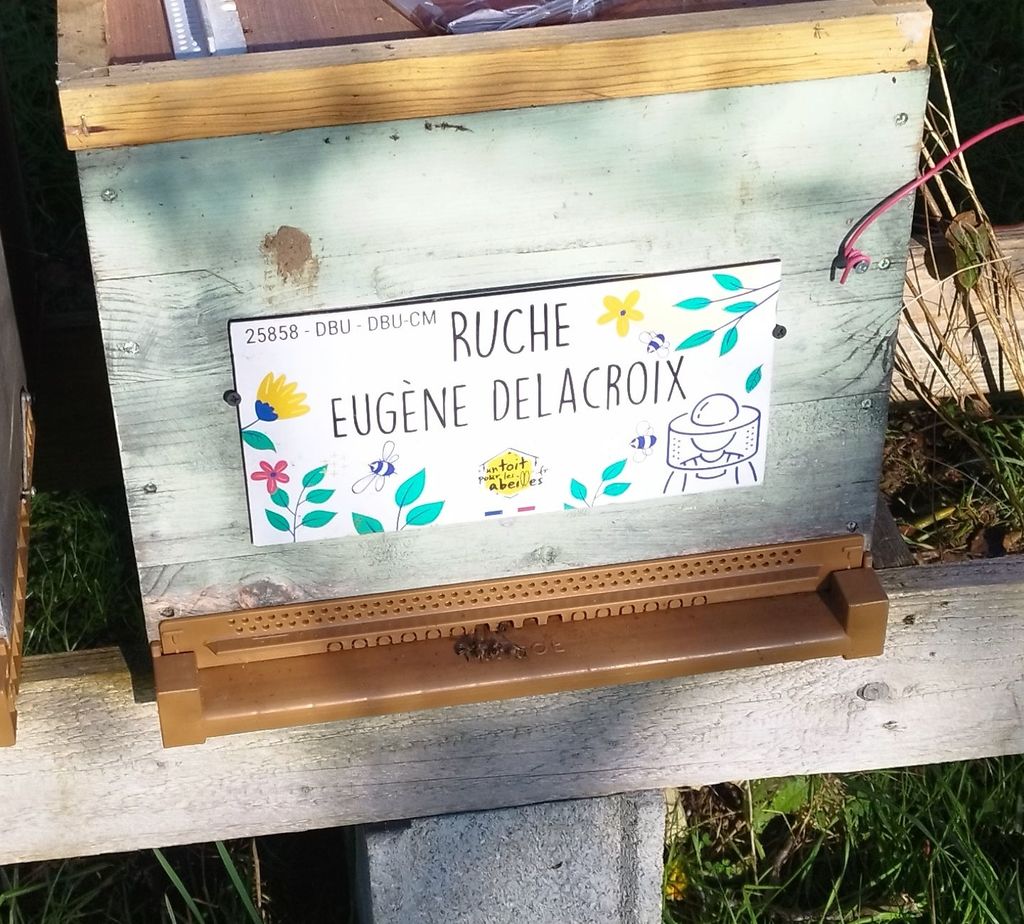 25858 - DBU - DBU-CM
RUCHE
EUGÈNE DELACROIX
un toit
pour les .fr
abeilles